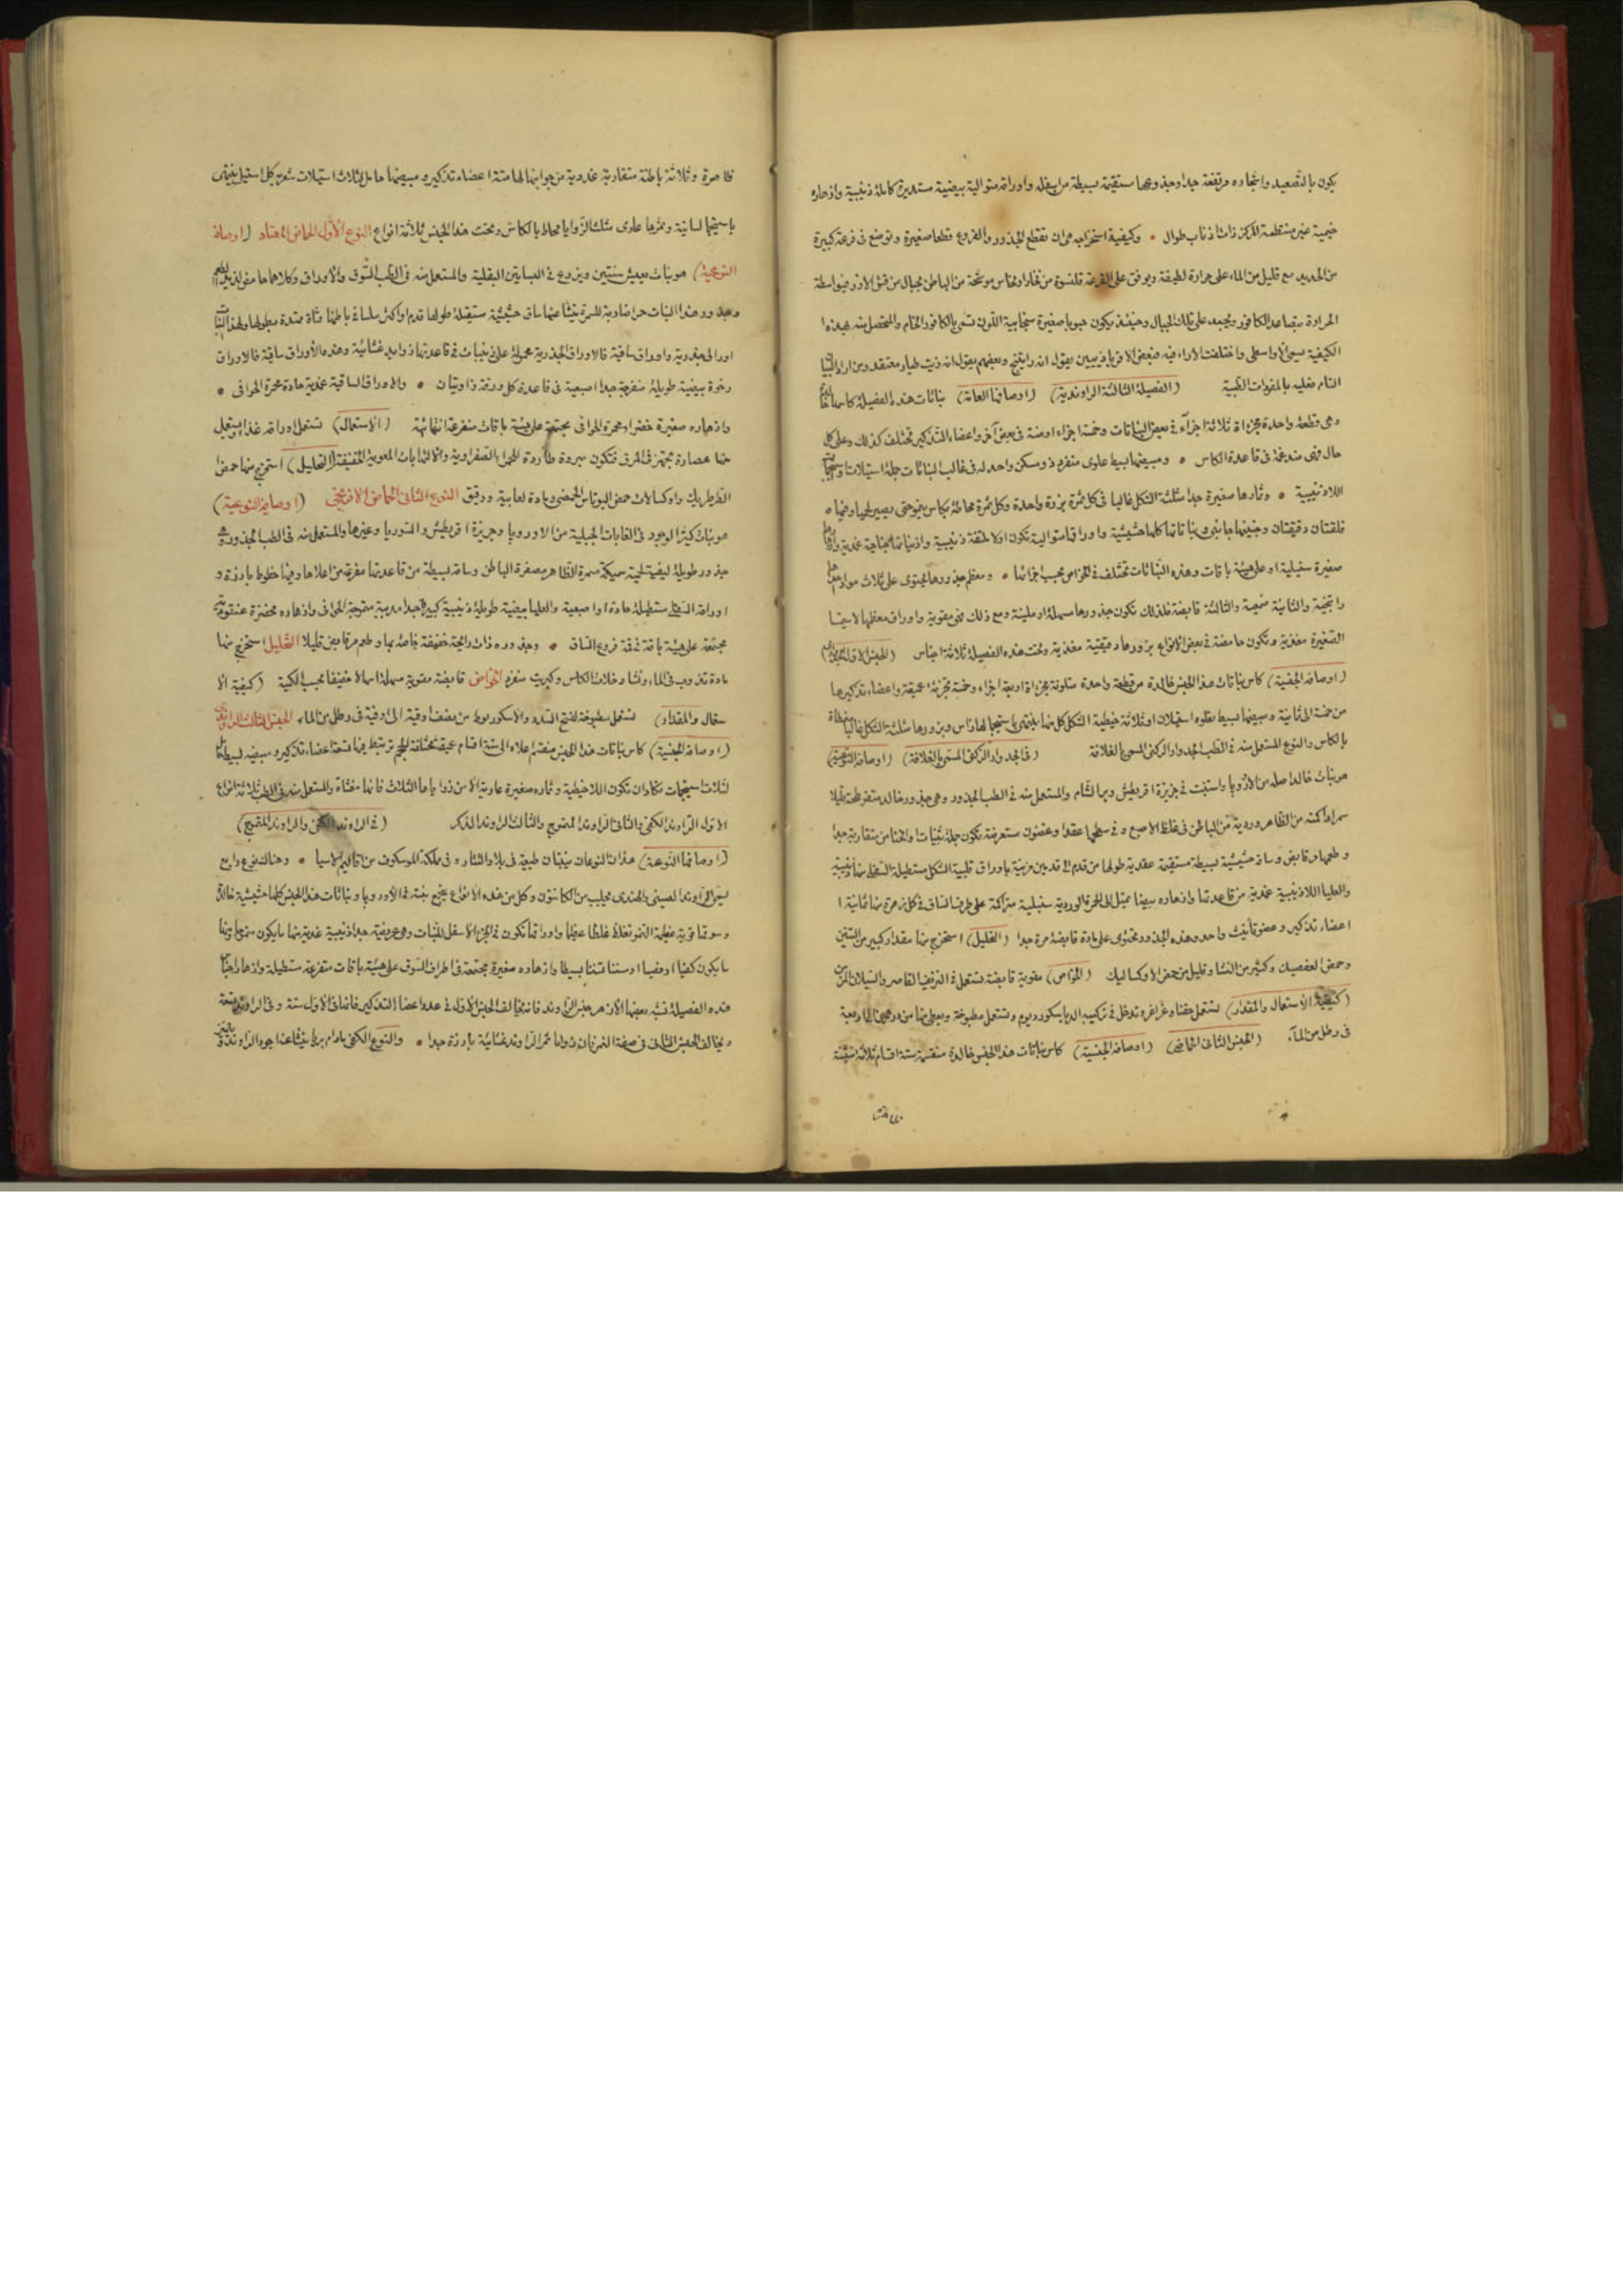 يكون بالتصعيد واشجاره مرتفعة جدا وجذوعها مستقيمة بسيطة من اسفله واوراقه متوالية بيضية مستديرة كاملة ذنيبية وازهاره
خيمية غير منتظمة المركز ذات اذناب طوال • وكيفية استخراجه هي ان تقطع الجذور والفروع قطعا صغيرة وتوضع في قرعة كبيرة
من الحديد مع قليل من الماء على حرارة لطيفة ويوفق على القرعة قلنسوة من فخار او نحاس موشحة من الباطن بحبال من قش الارز فبواسطة
الحرارة يتصاعد الكافور ويجمد على تلك الحبال وحينئذ يكون حبوبا صغيرة سنجابية اللون تسمى بالكافور الخام والمتحصل منه بهذه
الكيفية يسمى واختلفت الاراء فيه فبعض الاقرباذينيين يقول انه راتينج وبعضهم يقول انه زيت طيار منعقد ومن اراد البيان
التام فعليه بالمفردات الطبية (الفصيلة الثالثة الراوندية) (اوصافها العامة) نباتات هذه الفصيلة كاسها
وهي قطعة واحدة مجزاة ثلاثة اجزآء في بعض النباتات وخمسة اجزاء او ستة في بعض آخر واعضاء التذكير تختلف كذلك وعلى كل
حال فهي مندغمة في قاعدة الكاس • ومبيضها بسيط علوي منفرد ذو مسكن واحد له في غالب النباتات جملة استيلات
اللاذنيبية • وثمارها صغيرة جدا مثلثة الشكل غالبا في كل ثمرة بزرة واحدة وكل ثمرة محاطة بكاس ينمو حتى يصير لحميا وفيها
فلقتان دقيقتان وجنينها جانبي ونباتاتها كلها حشيشية واوراقها متوالية تكون اولا ملتفة ذنيبية واذنياتها جناحية غمدية
صغيرة سنبلية او على هيئة باقات وهذه النباتات تختلف في الخواص بحسب اجزائها • ومعظم جذورها يحتوي على ثلاث مواد
راتنجية والثانية صمغية والثالثة قابضة فلذلك تكون جذورها مسهلة او ملينة ومع ذلك فهي مقوية واوراق معظمها لاسيما
الصغيرة مغذية وتكون حامضة في بعض الانواع بزورها دقيقية مغذية وتحت هذه الفصيلة ثلاثة اجناس (الجنس الاول
(اوصافه الجنسية) كاس نباتات هذا الجنس خالدة من قطعة واحدة متلونة مجزاة اربعة اجزاء وخمسة تجزئة عميقة واعضاء تذكيرها
من خمسة الى ثمانية ومبيضها بسيط يعلوه استيلان او ثلاثة خيطية الشكل كل منها ينتهي باستيجما لها راس وبزورها مثلثة الشكل غالبا مغطاة
بالكاس والنوع المستعمل منه في الطب الجدوار الركفي المسمى بالغلافة (في الجدوار الركفي المسمى بالغلافة) (اوصافه النوعية)
هو نبات خالد اصله من الاوروبا واستنبت في جزيرة اقريطش وبر الشام والمستعمل منه في الطب الجذور وهي جذور خالد متفرطحة قليلا
سمراء دكنه من الظاهر وردية من الباطن في غلظ الاصبع وفي سطحها عقد وغضون مستعرضة تكون جملة ثنيات وانحناءات متقاربة جدا
وطعمها قابض وساقه حشيشية بسيطة مستقيمة عقدية طولها من قدم الى قدمين مزينة باوراق قلبية الشكل مستطيلة السفلى منها ذنيبية
والعليا اللاذنيبية غمدية من قاعدتها وازهاره بيضا تميل الى الحمرة الوردية سنبلية متراكمة على طرف الساق في كل زهرة منها ثمانية
اعضاء تذكير وعضو تأنيث واحد وهذه الجذور تحتوي على مادة قابضة مرة جدا (التحليل) استخرج منها مقدار كبير من التنين
وحمض العفصيك وكثير من النشا وقليل من حمض الاوكساليك (الخواص) مقوية قابضة تستعمل في النزيف القاصر والسيلان المزمن
(كيفية الاستعمال والمقدار) تستعمل حقنا وغراغر وتدخل في تركيب الدياسكورديوم وتستعمل مطبوخة ويعطى منها من درهمين الى اربعة
في رطل من المآء (الجنس الثاني الحماضي) (اوصافه الجنسية) كاس نباتات هذا الجنس خالدة منقسمة ستة اقسام ثلاثة منها
ظاهرة وثلاثة باطنة متقاربة غددية من جوانبها لها ستة اعضاء تذكير ومبيضها حامل لثلاث استيلات شعرية كل استيل ينتهي
باستيجما لسانية وثمرها علوي مثلث الزوايا محاط بالكاس وتحت هذا الجنس ثلاثة انواع النوع الاول الحماض المعتاد (اوصافه
النوعية) هو نبات يعيش سنتين ويزرع في البساتين البقلية والمستعمل منه في الطب السوق والاوراق وكلاهما حامض لذيذ الطعم
وجذور هذا النبات حمراء ضاربة للسمرة ينشا عنها ساق حشيشية مستقيمة طولها قدم واكثر ملساء في باطنها قناة ممتدة بطولها ولهذا النبات
اوراق جذرية واوراق ساقية فالاوراق الجذرية محمولة على ذنيبات في قاعدتها زوايد غشائية وهذه الأوراق ساقية فالاوراق
رخوة بيضية طويلة منفرجة جدا اصبعية في قاعدة كل ورقة زاويتان • والاوراق الساقية غمدية حادة محمرة الحوافي •
وازهاره صغيرة خضراء محمرة الحوافي مجتمعة على هيئة باقات متفرعة انتهائية (الاستعمال) تستعمل اوراقه غذاء ويستعمل
منها عصارة تجهز في المرق فتكون مبردة طاردة للحمى الصفراوية والالتهابات المعوية الخفيفة (التحليل) استخرج منها حمض
الطرطريك واوكسالات حمض البوتاس الحمضي ومادة لعابية ودقيق النوع الثاني الحماض الافرنجي (اوصافه النوعية)
هو نبات كثير الوجود في الغابات الجبلية من الاوروبا وجزيرة اقريطش والسوريا وغيرها والمستعمل منه في الطب الجذور وهي
جذور طويلة ليفية لحمية سميكة مسمرة الظاهر مصفرة الباطن وساقه بسيطة من قاعدتها مفرعة من اعلاها وفيها خطوط بارزة و
اوراقه السفلى مستطيلة حادة او اصبعية والعليا بيضية طويلة ذنيبية كبيرة جدا مدببة متموجة الحوافي وازهاره مخضرة عنقودية
مجتمعة على هيئة باقة في قمة فروع الساق • وجذوره ذات رائحة خفيفة خاصة بها وطعم مر قابض قليلا التحليل استخرج منها
مادة تذوب في الماء ونشا وخلات الكاس وكبريت منفرد الخواص قابضة مقوية مسهلة اسهالا خفيفا بحسب الكمية (كيفية الا
ستعمال والمقدار) تستعمل مطبوخة لفتح السدد والاسكوربوط من نصف اوقية الى اوقية في رطل من الماء الجنس الثالث الراوندي
(اوصافه الجنسية) كاس نباتات هذا الجنس منقسم اعلاه الى ستة اقسام عميقة مختلفة الحجم ترتبط فيها تسعة اعضاء تذكير ومبيضه بسيط
ثلاث ستيجمات تكاد ان تكون اللاخيطية وثماره صغيرة عارية الا من زواياها الثلاث فانها مغشاة والمستعمل منه في الطب ثلاثة انواع
الاول الراوند الكفي والثاني الراوند المتموج والثالث الراوند الذكر (في الراوند الكفي والراوند المتموج)
(اوصافها النوعية) هذان النوعان ينبتان طبيعة في بلاد التتار وفي مملكة الموسكوف من اقاليم الاسيا • وهناك نوع رابع
يسمى الراوند الصيني والهندي يجلب من الكانتون وكل من هذه الانواع ينجح نبته في الاوروبا ونباتات هذا الجنس كلها حشيشية خالدة
وسوقها قوية عظيمة النمو تغلظ غلظا عظيما واوراقها تكون في الجزء الاسفل للنبات وهي عريضة جدا ذنيبية غمدية منها مايكون متموجا ومنها
مايكون كفيا او فصيا او مسننا تسننا بسيطا وازهاره صغيرة مجتمعة في اطراف السوق على هيئة باقات متفرعة مستطيلة وازهار
هذه الفصيلة تشبه بعضها الا زهر جنس الراوند فانه يخالف الجنس الاول في عدد اعضا التذكير فانها في الاول ستة وفي الراوند تسعة
ويخالف الجنس الثاني في صفة الثمر فان زوايا ثمر الراوند غشائية بارزة جدا • والنوع الكفي